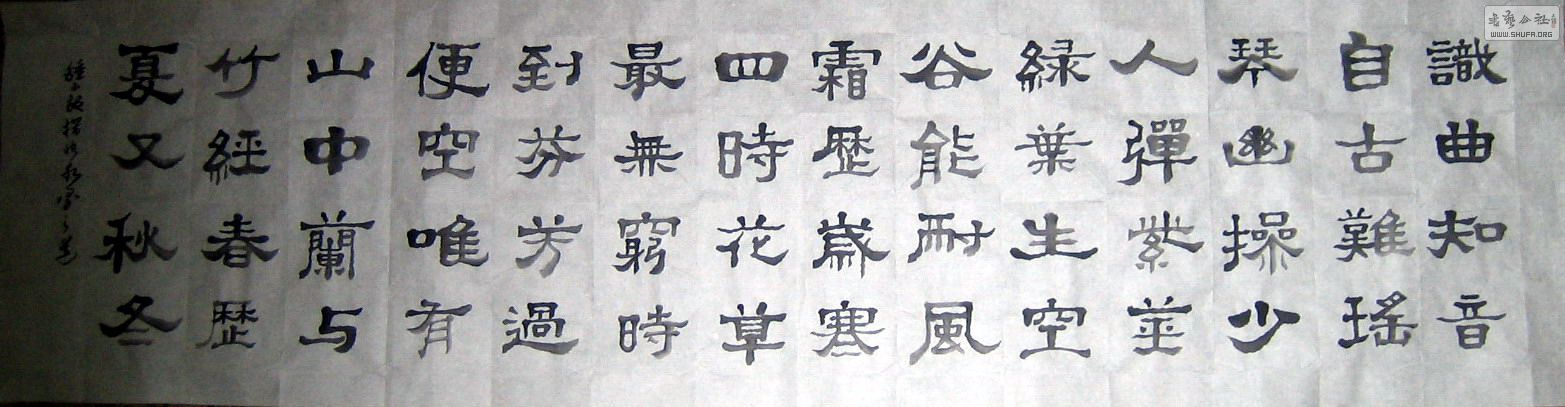 識曲知音
自古難瑤
琴幽操少
人彈紫莖
緑葉生空
谷能耐風
霜歴歲寒
四時花草
最無窮時
到芬芳過
便空唯有
山中蘭与
竹經春歴
夏又秋冬
書藝公社
WWW.SHUFA.ORG